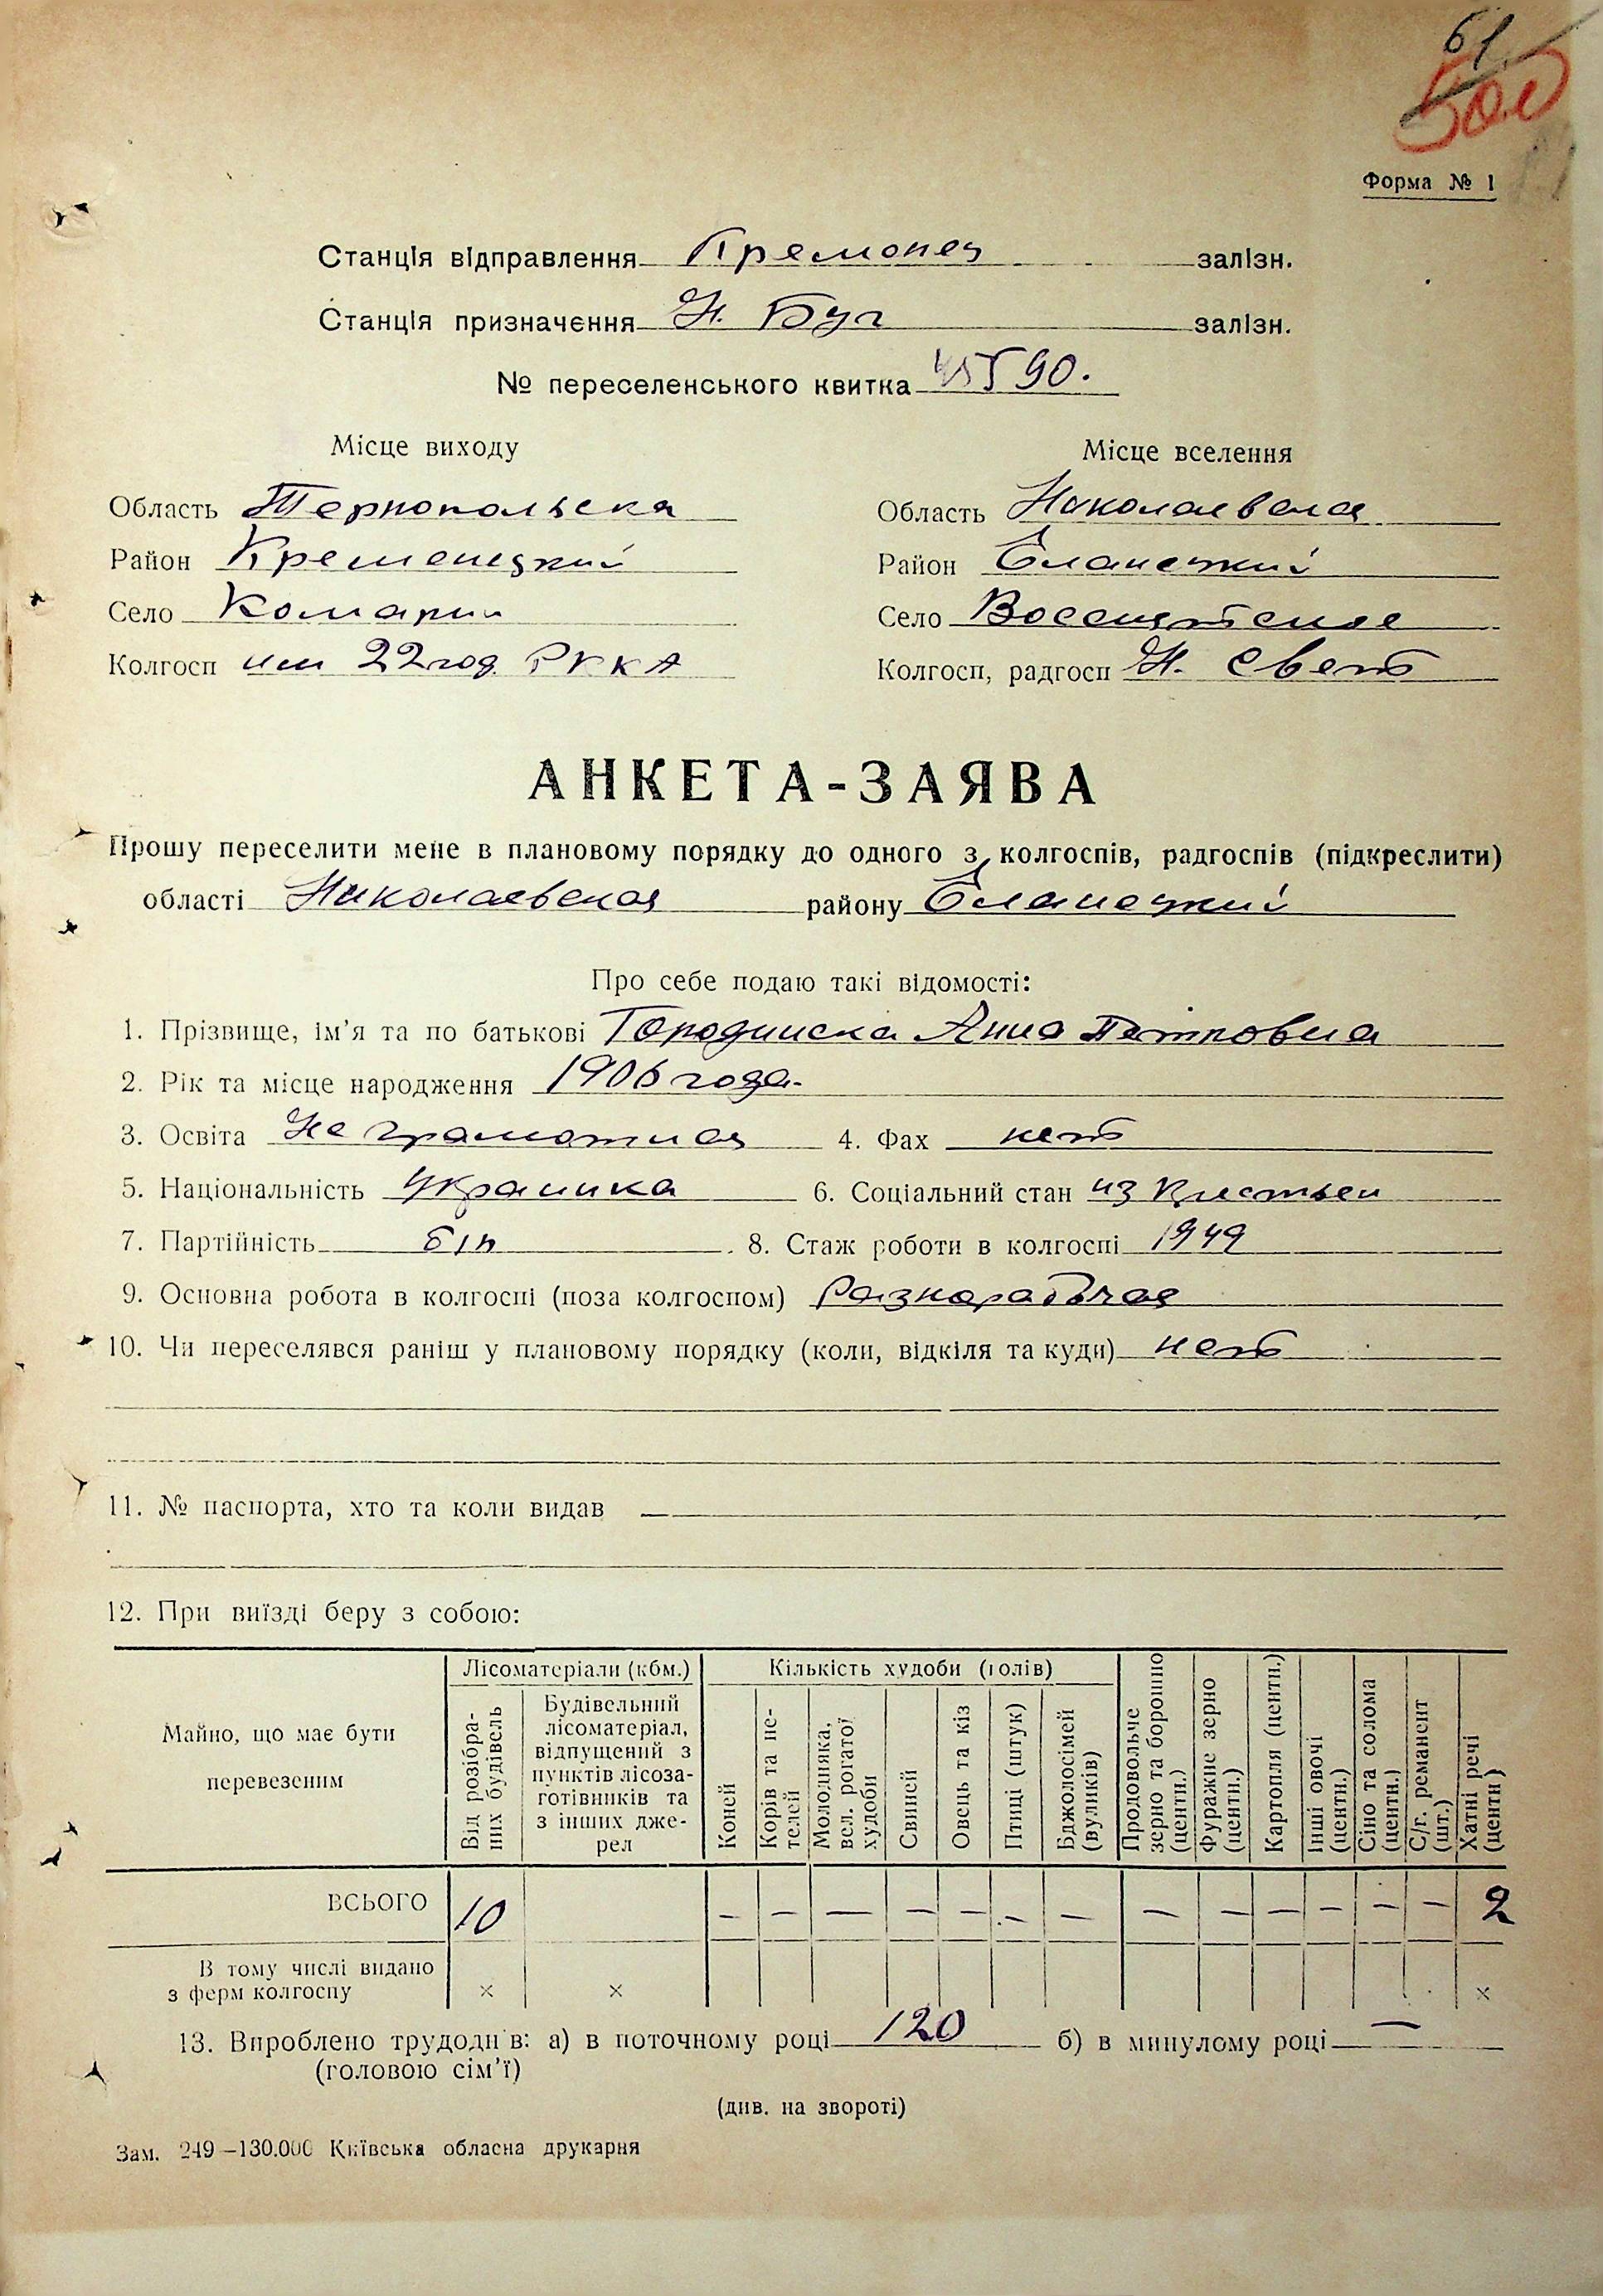 61
Форма № 1
Станція відправлення Кременец залізн.
Станція призначення Н. Буг залізн.
№ переселенського квитка 45590.
Місце виходу
Місце вселення
Область Тернопольска
Область Николаевская
Район Кременецкий
Район Еланецкий
Село Комарин
Село
Колгосп им 22 год. РККА
Колгосп, радгосп Н. Свет
АНКЕТА-ЗАЯВА
Прошу переселити мене в плановому порядку до одного з колгоспів, радгоспів (підкреслити)
області Николаевская району Еланецкий
Про себе подаю такі відомості:
1. Прізвище, ім'я та по батькові Городинска Анна Петровна
2. Рік та місце народження 1906 года.
3. Освіта Не грамотная 4. Фах нет
5. Національність Украинка 6. Соціальний стан из Крестьен
7. Партійність б/п 8. Стаж роботи в колгоспі 1949
9. Основна робота в колгоспі (поза колгоспом) Разнорабочая
10. Чи переселявся раніш у плановому порядку (коли, відкіля та куди) нет
11. № паспорта, хто та коли видав —
12. При виїзді беру з собою:
Майно, що має бути перевезеним
Лісоматеріали (кбм.)
Від розібраних будівель
Будівельний лісоматеріал, відпущений з пунктів лісозаготівників та з інших джерел
Кількість худоби (голів)
Коней
Корів та нетелей
Молодняка, вел. рогатої худоби
Свиней
Овець та кіз
Птиці (штук)
Бджолосімей (вуликів)
Продовольче зерно та борошно (центн.)
Фуражне зерно (центн.)
Картопля (центн.)
Інші овочі (центн.)
Сіно та солома (центн.)
С/г. реманент (шт.)
Хатні речі (центн)
ВСЬОГО 10 — — — — — — — — — — — — — 2
В тому числі видано з ферм колгоспу × × ×
13. Вироблено трудоднів: а) в поточному році 120 б) в минулому році —
(головою сім'ї)
(див. на звороті)
Зам. 249—130.000 Київська обласна друкарня